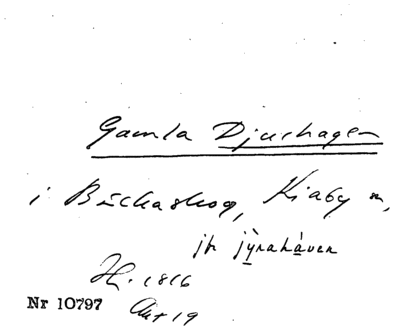 Gamla Djurhagen
i Bäckaskog, Kiaby sn,
jfr jỳrahàven
H. 1816
Nr 10797 Akt 19